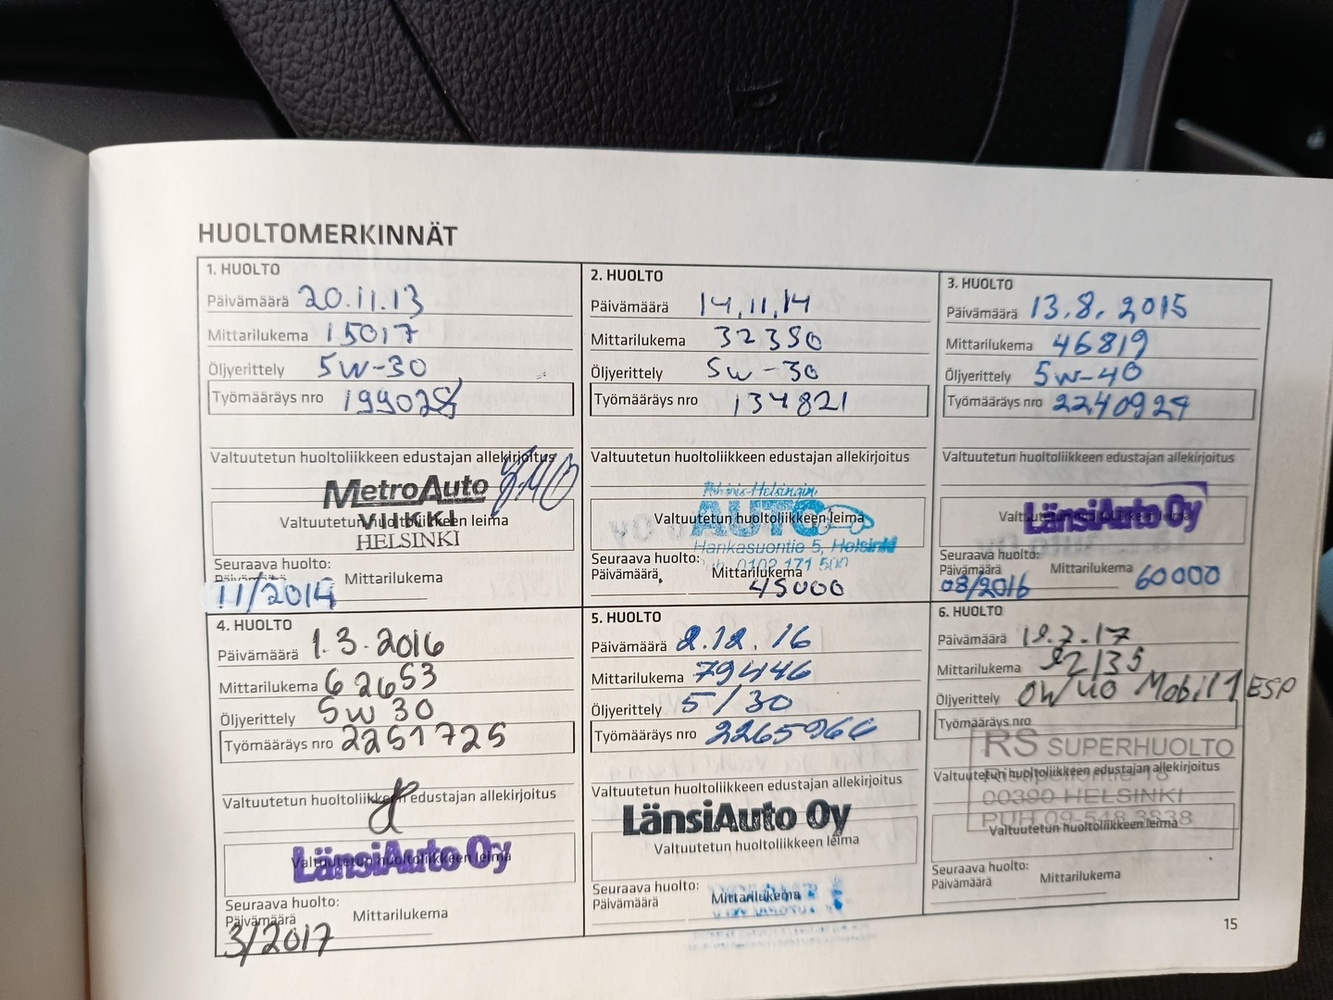 HUOLTOMERKINNÄT
1. HUOLTO
Päivämäärä 20.11.13
Mittarilukema 15017
Öljyerittely 5W-30
Työmääräys nro 199028
Valtuutetun huoltoliikkeen edustajan allekirjoitus
MetroAuto
VIIKKI
Valtuutetun huoltoliikkeen leima
HELSINKI
Seuraava huolto:
Päivämäärä Mittarilukema
11/2014
2. HUOLTO
Päivämäärä 14.11.14
Mittarilukema 32380
Öljyerittely 5w-30
Työmääräys nro 134821
Valtuutetun huoltoliikkeen edustajan allekirjoitus
Pohjois-Helsingin
AUTO
Valtuutetun huoltoliikkeen leima
Hankasuontie 5, Helsinki
Seuraava huolto: puh. 0102 171 500
Päivämäärä Mittarilukema
45000
3. HUOLTO
Päivämäärä 13.8.2015
Mittarilukema 46819
Öljyerittely 5w-40
Työmääräys nro 2240929
Valtuutetun huoltoliikkeen edustajan allekirjoitus
LänsiAuto Oy
Seuraava huolto:
Päivämäärä Mittarilukema 60000
08/2016
4. HUOLTO
Päivämäärä 1.3.2016
Mittarilukema 62653
Öljyerittely 5w 30
Työmääräys nro 2251725
Valtuutetun huoltoliikkeen edustajan allekirjoitus
LänsiAuto Oy
Valtuutetun huoltoliikkeen leima
Seuraava huolto:
Päivämäärä Mittarilukema
3/2017
5. HUOLTO
Päivämäärä 2.12.16
Mittarilukema 79446
Öljyerittely 5/30
Työmääräys nro 2265966
Valtuutetun huoltoliikkeen edustajan allekirjoitus
LänsiAuto Oy
Valtuutetun huoltoliikkeen leima
Seuraava huolto:
Päivämäärä Mittarilukema
6. HUOLTO
Päivämäärä 19.7.17
Mittarilukema 92135
Öljyerittely 0W/40 Mobil 1 ESP
Työmääräys nro
RS SUPERHUOLTO
Valtuutetun huoltoliikkeen edustajan allekirjoitus
00390 HELSINKI
PUH 09-548 3838
Valtuutetun huoltoliikkeen leima
Seuraava huolto:
Päivämäärä Mittarilukema
15